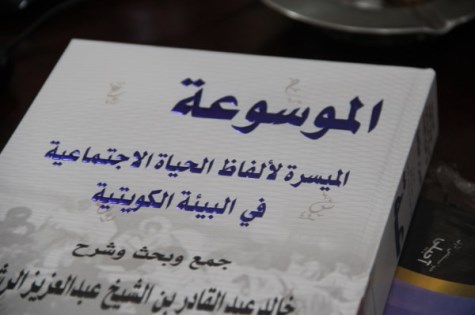 الموسوعة
الميسرة لألفاظ الحياة الاجتماعية
في البيئة الكويتية
جمع وبحث وشرح
خالد عبدالقادر بن الشيخ عبدالعزيز